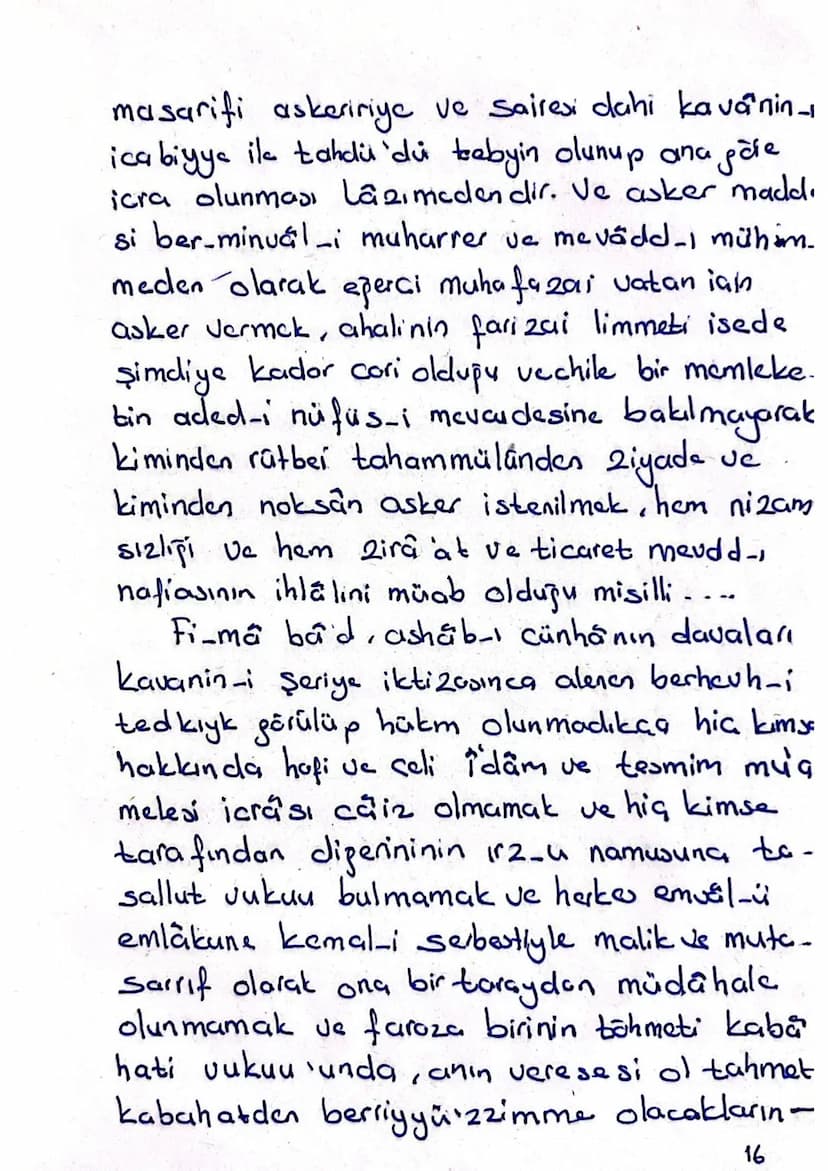 masarifi askeririye ve sairesi dahi kavânin-ı
icabiyye ile tahdü'dü tebyin olunup ana göre
icra olunması lâzımedendir. Ve asker maddi
si ber-minvâl-i muharrer ve mevâdd-ı mühim-
meden olarak eğerci muhafazai vatan için
asker vermek, ahalinin farizai limmeti isede
şimdiye kador cari olduğu vechile bir memleke-
tin aded-i nüfüs-i mevcudesine bakılmayarak
kiminden rütbei tahammülânden ziyade ve
kiminden noksân asker istenilmek, hem nizam
sızlığı ve hem zirâ'at ve ticaret mevdd-ı
nafiasının ihlâlini müab olduğu misilli....
Fi-mâ bâ'd, ashâb-ı cünhânın davaları
kavanin-i şeriye iktizasınca alenen berhevh-i
tedkıyk görülüp hükm olunmadıkça hiç kimse
hakkında hafi ve celi î'dâm ve tesmim mu'a
melesi icrâsı câiz olmamak ve hiç kimse
tarafından diğerininin ırz-u namusuna ta-
sallut vukuu bulmamak ve herkes emvâl-ü
emlâkune kemal-i serbestiyle malik ve muta-
sarrıf olarak ona bir taraydan müdâhale
olunmamak ve faroza birinin töhmeti kabâ
hati vukuu'unda, anın veresesi ol tahmet
kabahatden berriyyü'zzimme olacakların-
16